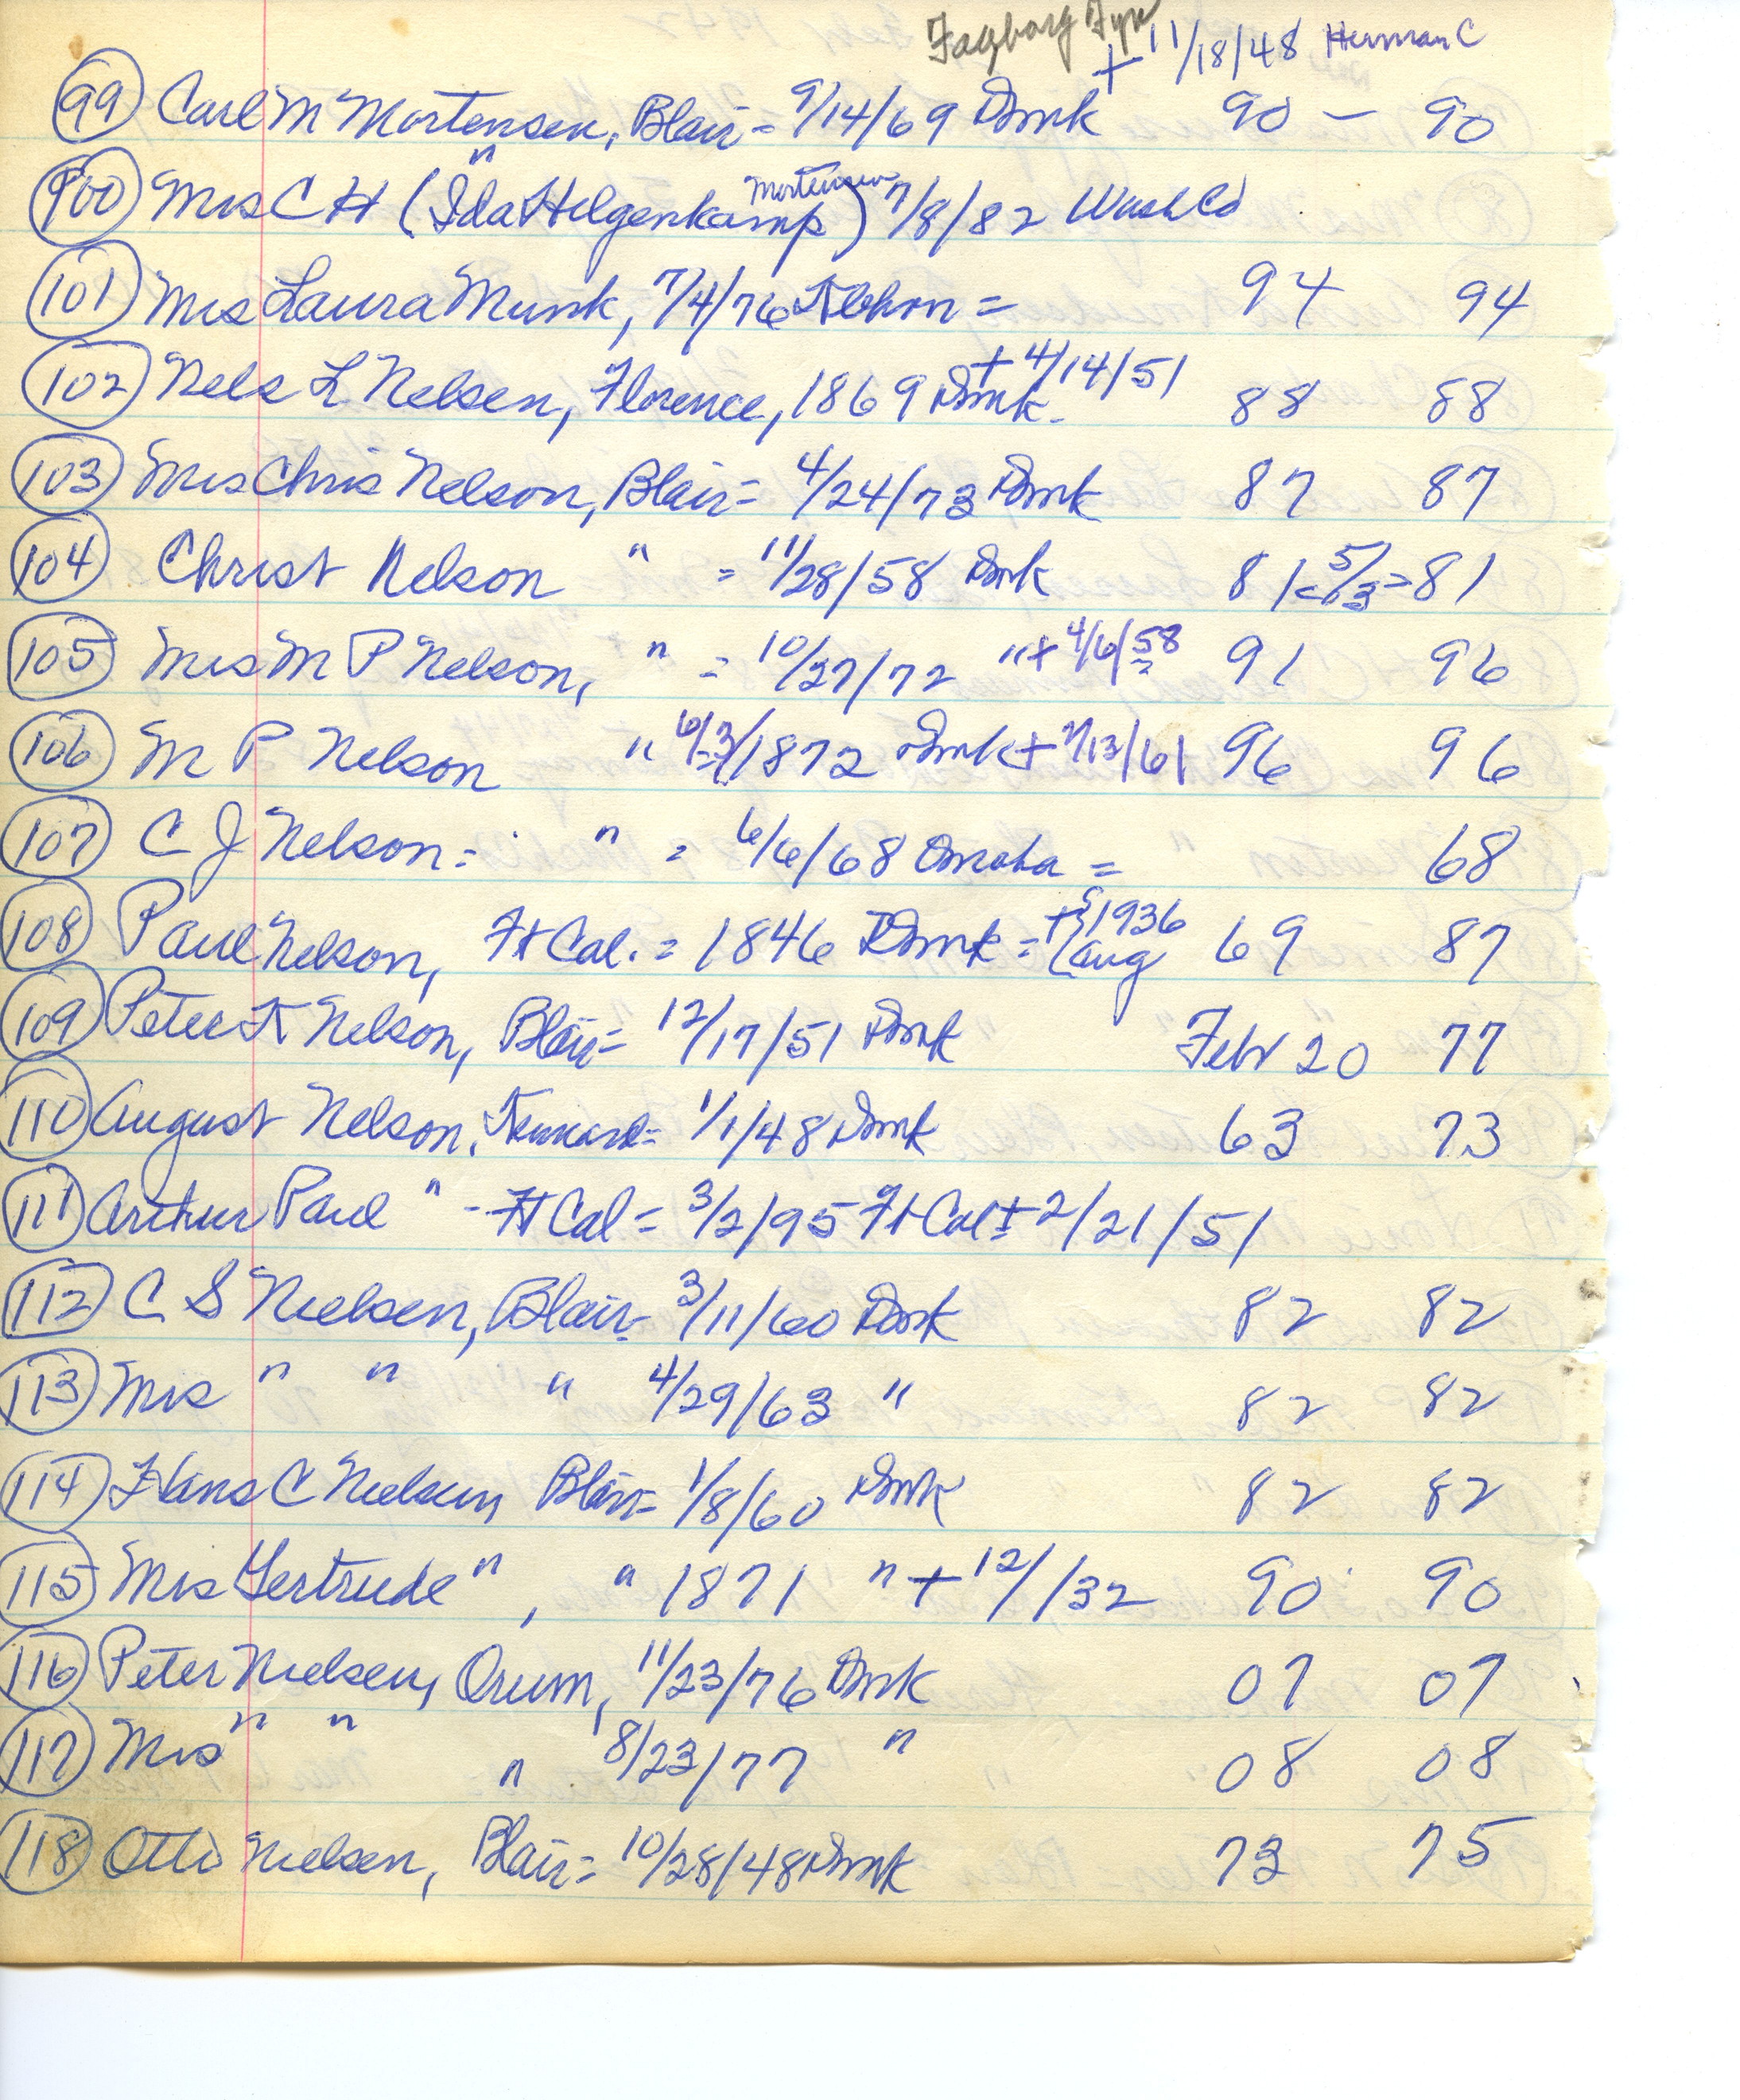 Faaborg Fyn
+ 11/18/48 Herman C
99 Carl M Mortensen, Blair = 9/14/69 Dmk 90 — 90
100 Mrs C H " (Ida Hilgenkamp Mortensen) 7/8/82 Wash Co
101 Mrs Laura Munk, 7/4/76 = 94 94
102 Nels L Nelsen, Florence, 1869 Dmk. + 4/14/51 88 88
103 Mrs Chris Nelson, Blair = 4/24/73 Dmk 87 87
104 Christ Nelson " = 11/28/58 Dmk 81 <5/3> 81
105 Mrs M P Nelson, " = 10/27/72 " + 4/6/58 91 96
106 M P Nelson " 6/3/1872 Dmk + 7/13/61 96 96
107 C J Nelson = " = 6/6/68 Omaha = 68
108 Paul Nelson, Ft Cal. = 1846 Dmk = + 1936 Aug 69 87
109 Peter K Nelson, Blair = 12/17/51 Dmk Febr 20 77
110 August Nelson, Kennard = 1/1/48 Dmk 63 73
111 Arthur Paul " - Ft Cal = 3/2/95 Ft Cal + 2/21/51
112 C S Nielsen, Blair - 3/11/60 Dmk 82 82
113 Mrs " " " 4/29/63 " 82 82
114 Hans C Nielsen, Blair = 1/8/60 Dmk 82 82
115 Mrs Gertrude ", " 1871 " + 12/ /32 90 90
116 Peter Nielsen, Orum, 11/23/76 Dmk 07 07
117 Mrs " " " 8/23/77 " 08 08
118 Otto Nielsen, Blair = 10/28/48 Dmk 73 75